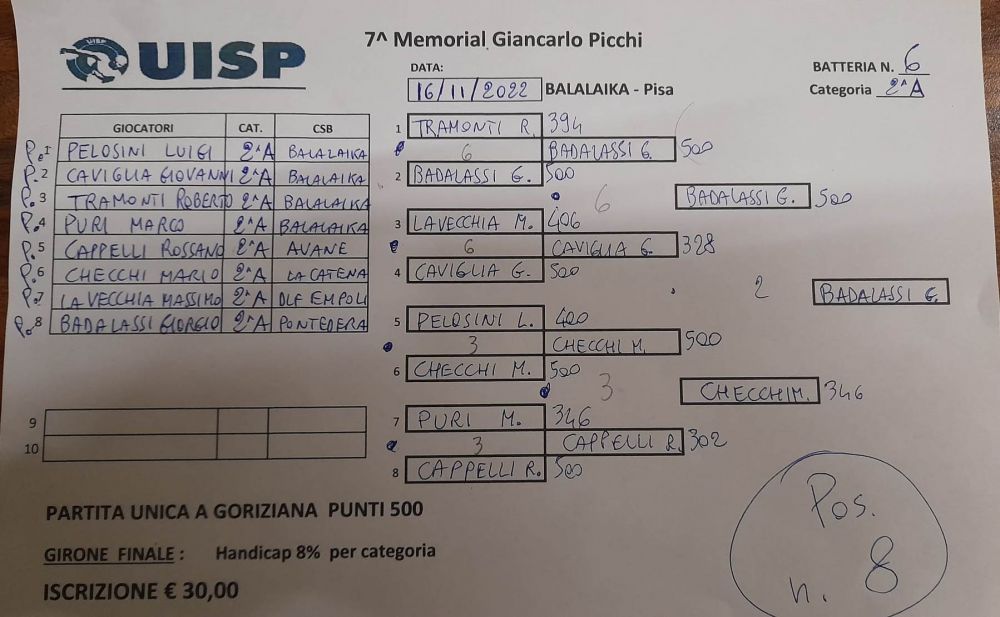 UISP
7^ Memorial Giancarlo Picchi
DATA:
16/11/2022 BALALAIKA - Pisa
BATTERIA N. 6
Categoria 2^A
GIOCATORI CAT. CSB
P.1 PELOSINI LUIGI 2^A BALALAIKA
P.2 CAVIGLIA GIOVANNI 2^A BALALAIKA
P.3 TRAMONTI ROBERTO 2^A BALALAIKA
P.4 PURI MARCO 2^A BALALAIKA
P.5 CAPPELLI ROSSANO 2^A AVANE
P.6 CHECCHI MARIO 2^A LA CATENA
P.7 LAVECCHIA MASSIMO 2^A DLF EMPOLI
P.8 BADALASSI GIORGIO 2^A PONTEDERA
9
10
1 TRAMONTI R. 394
6 BADALASSI G. 500
2 BADALASSI G. 500
6 BADALASSI G. 500
3 LAVECCHIA M. 406
6 CAVIGLIA G. 328
4 CAVIGLIA G. 500
2 BADALASSI G.
5 PELOSINI L. 400
3 CHECCHI M. 500
6 CHECCHI M. 500
3 CHECCHI M. 346
7 PURI M. 346
3 CAPPELLI R. 302
8 CAPPELLI R. 500
PARTITA UNICA A GORIZIANA PUNTI 500
GIRONE FINALE : Handicap 8% per categoria
ISCRIZIONE € 30,00
Pos.
n. 8